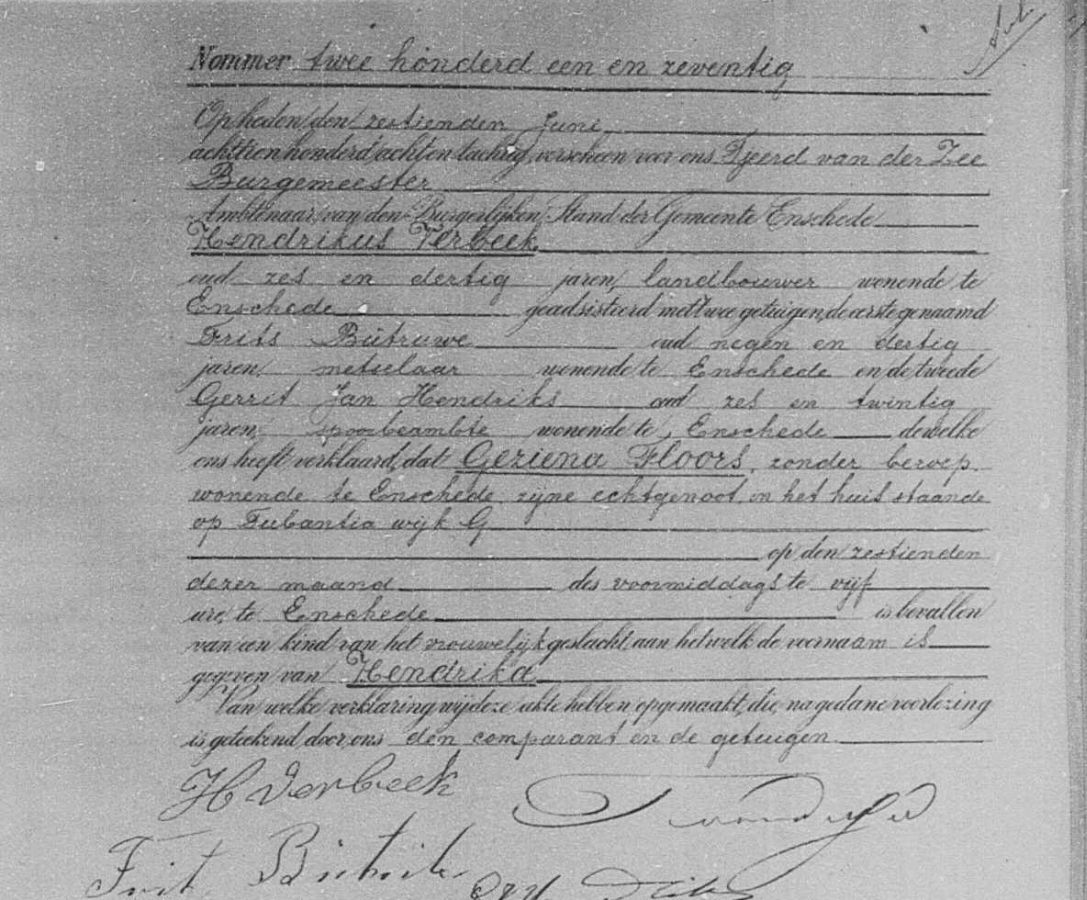 Nommer twee honderd een en zeventig
Op heden den zestienden Juni
achttien honderd acht en tachtig, verscheen voor ons Tjeerd van der Zee
Burgemeester
Ambtenaar van den Burgerlijken Stand der Gemeente Enschede
Hendrikus Verbeek
oud zes en dertig jaren, landbouwer wonende te
Enschede geadsisteerd met twee getuigen, de eerste genaamd
Frits Bütruwe oud negen en dertig
jaren, metselaar wonende te Enschede en de tweede
Gerrit Jan Hendriks oud zes en twintig
jaren, spoorbeambte wonende te Enschede dewelke
ons heeft verklaard, dat Geziena Floors, zonder beroep,
wonende te Enschede, zijne echtgenoot, in het huis staande
op Tubantia wijk G
op den zestienden
dezer maand des voormiddags te vijf
ure, te Enschede is bevallen
van een kind van het vrouwelijk geslacht, aan hetwelk de voornaam is
gegeven van Hendrika
Van welke verklaring wij deze akte hebben opgemaakt, die, na gedane voorlezing
is geteekend door ons den comparant en de getuigen
H Verbeek